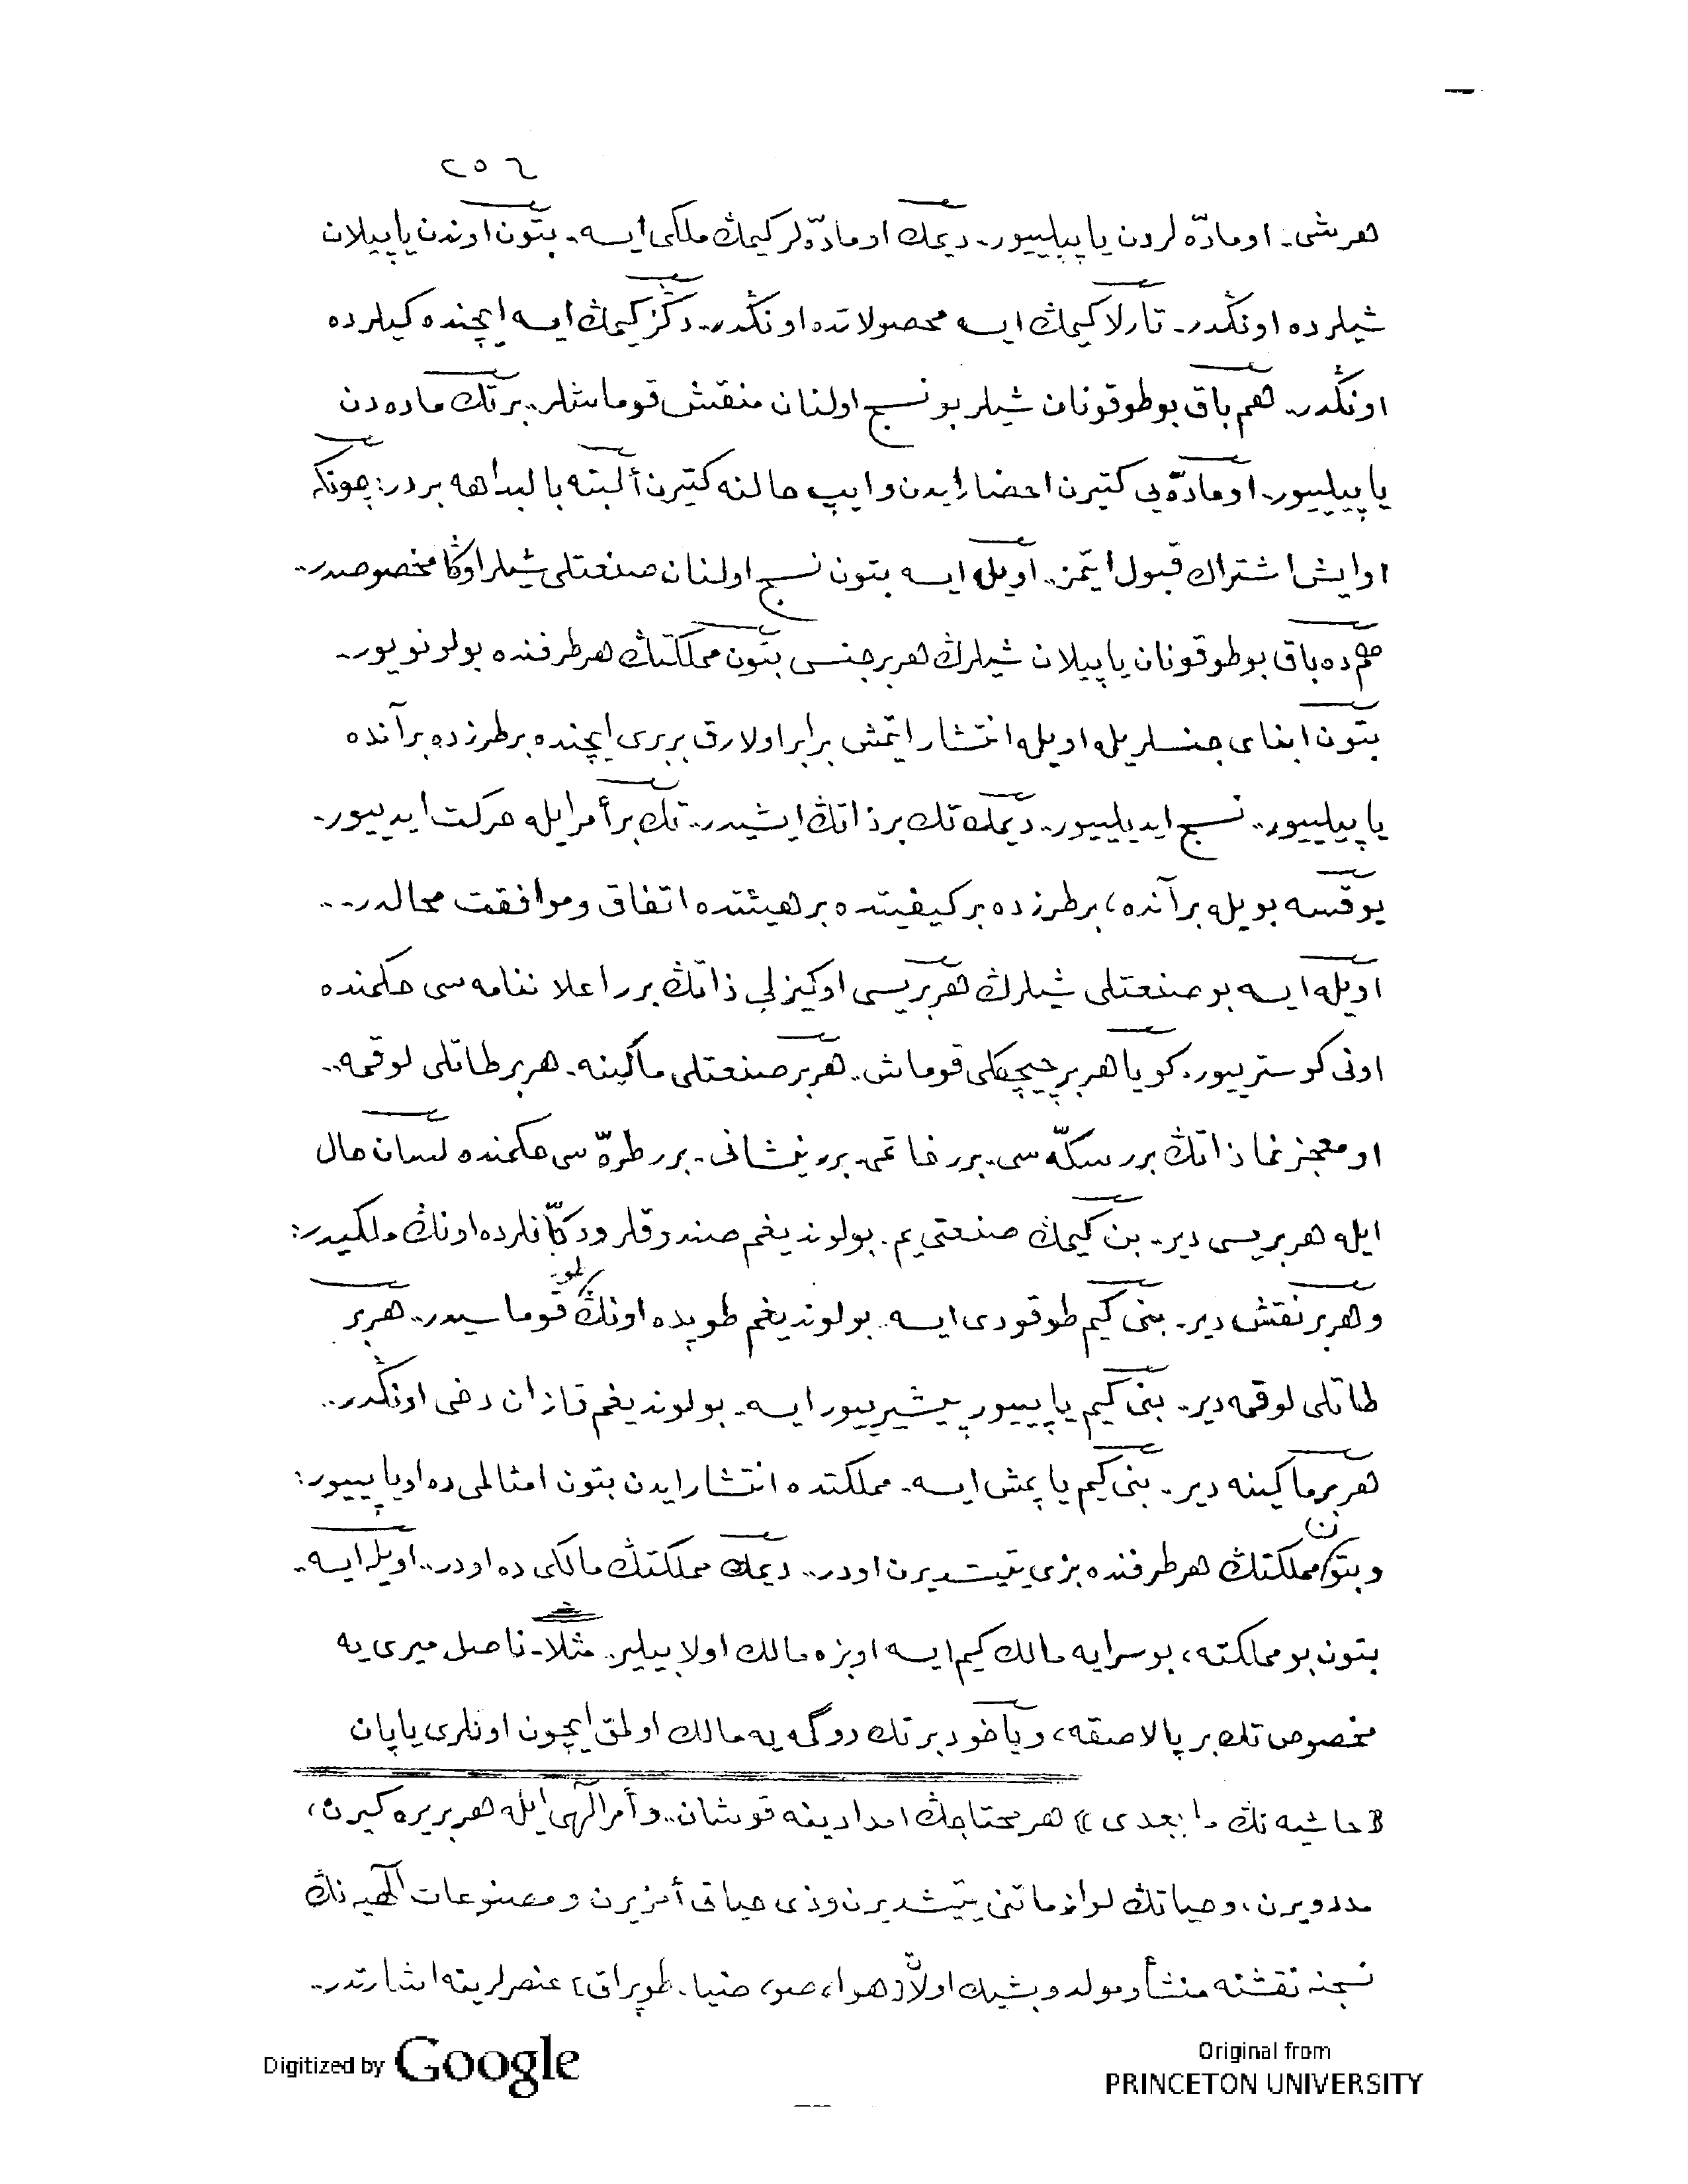 ٢٥٦
هرشى. اومادّه‌لردن ياپيلييور. ديمك اومادّه‌لر كيمڭ ملكى ايسه. بتون اوندن ياپيلان
شيلرده اونڭدر. تارلا كيمڭ ايسه محصولاتده اونڭدر.. دڭز كيمڭ ايسه ايچنده‌كيلرده
اونڭدر. هم باق بو طوقونان شيلر بو نسج اولنان منقش قوماشلر.. بر تك ماده‌دن
ياپيلييور. اومادّه‌يى كتيرن احضار ايدن و ايپ حالنه كتيرن ألبته بالبداهه بردر: چونكه
او ايش اشتراك قبول ايتمز.. اويله ايسه بتون نسج اولنان صنعتلى شيلر اوڭا مخصوصدر..
هم ده باق بو طوقونان ياپيلان شيلرڭ هربر جنسى بتون مملكتڭ هر طرفنده بولونويور.
بتون ابناى جنسلريله اويله انتشار ايتمش برابر اولارق بربرى ايچنده بر طرزده بر آنده
ياپيلييور.. نسج ايديلييور.. ديمك تك بر ذاتڭ ايشيدر.. تك بر أمر ايله حركت ايدييور.
يوقسه بويله بر آنده، بر طرزده بر كيفيتده بر هيئتده اتفاق و موافقت محالدر...
اويله ايسه بو صنعتلى شيلرڭ هربريسى او كيزلى ذاتڭ برر اعلاننامه‌سى حكمنده
اونى كوسترييور. كويا هربر چيچكلى قوماش. هربر صنعتلى ماكينه. هربر طاتلى لوقمه..
او معجزنما ذاتڭ برر سكّه‌سى. برر خاتمى. برر نشانى. برر طرّه‌سى حكمنده لسان حال
ايله هربريسى دير. بن كيمڭ صنعتى‌يم. بولونديغم صندوقلر و دكّانلرده اونڭ ملكيدر:
و هربر نقش دير. بنى كيم طوقودى ايسه. بولونديغم طوپده اونڭ قوماسيدر.. هربر
طاتلى لوقمه دير. بنى كيم ياپييور پيشيرييور ايسه. بولونديغم قازان دخى اونڭدر..
هربر ماكينه دير. بنى كيم ياپمش ايسه. مملكتده انتشار ايدن بتون امثالمى ده او ياپييور:
و بتون مملكتڭ هر طرفنده بزى يتيشديرن اودر.. ديمك مملكتڭ مالكى ده اودر.. اويله ايسه.
بتون بو مملكته، بو سرايه مالك كيم ايسه او بزه مالك اولابيلير. مثلا. ناصل ميرى‌يه
مخصوص تك بر پالاصقه، وياخود بر تك دوگمه‌يه مالك اولمق ايچون اونلرى ياپان
«حاشيه‌نڭ مابعدى» هر محتاجڭ امدادينه قوشان.. و أمر الٓهى ايله هر يره كيرن،
مدد ويرن، و حياتڭ لوازماتنى يتيشديرن و ذى حياتى أمزيرن و مصنوعات الٓهيه‌نڭ
نسجنه نقشنه منشأ و مولد و بشيك اولان [هوا، صو، ضيا. طوپراق] عنصرلرينه اشارتدر..
Digitized by Google
Original from
PRINCETON UNIVERSITY